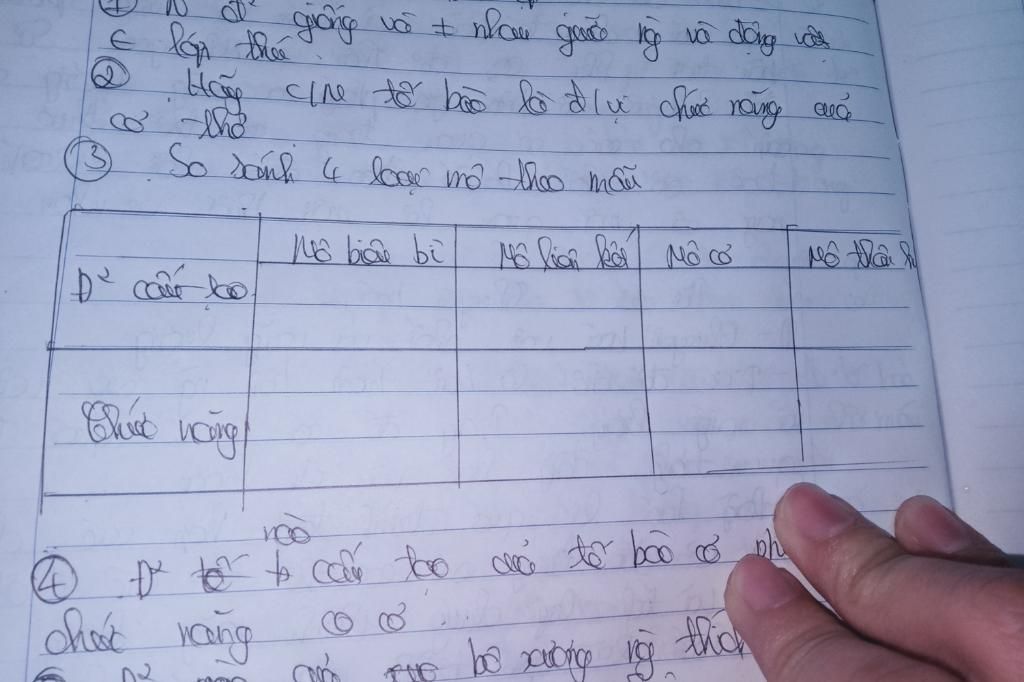 ① N đ² giống và ≠ nhau giữa ng và động vật
c lớp thú
② Hãy C/M tế bào là đ/vị chức năng của
cơ thể
③ So sánh 4 loại mô theo mẫu
Mô biểu bì Mô liên kết Mô cơ Mô thần
Đ² cấu tạo
Chức năng
nào
④ Đ² tế b cấu tạo của tế bào cơ ph
chức năng co cơ
Đ² nào của bộ xương ng thích